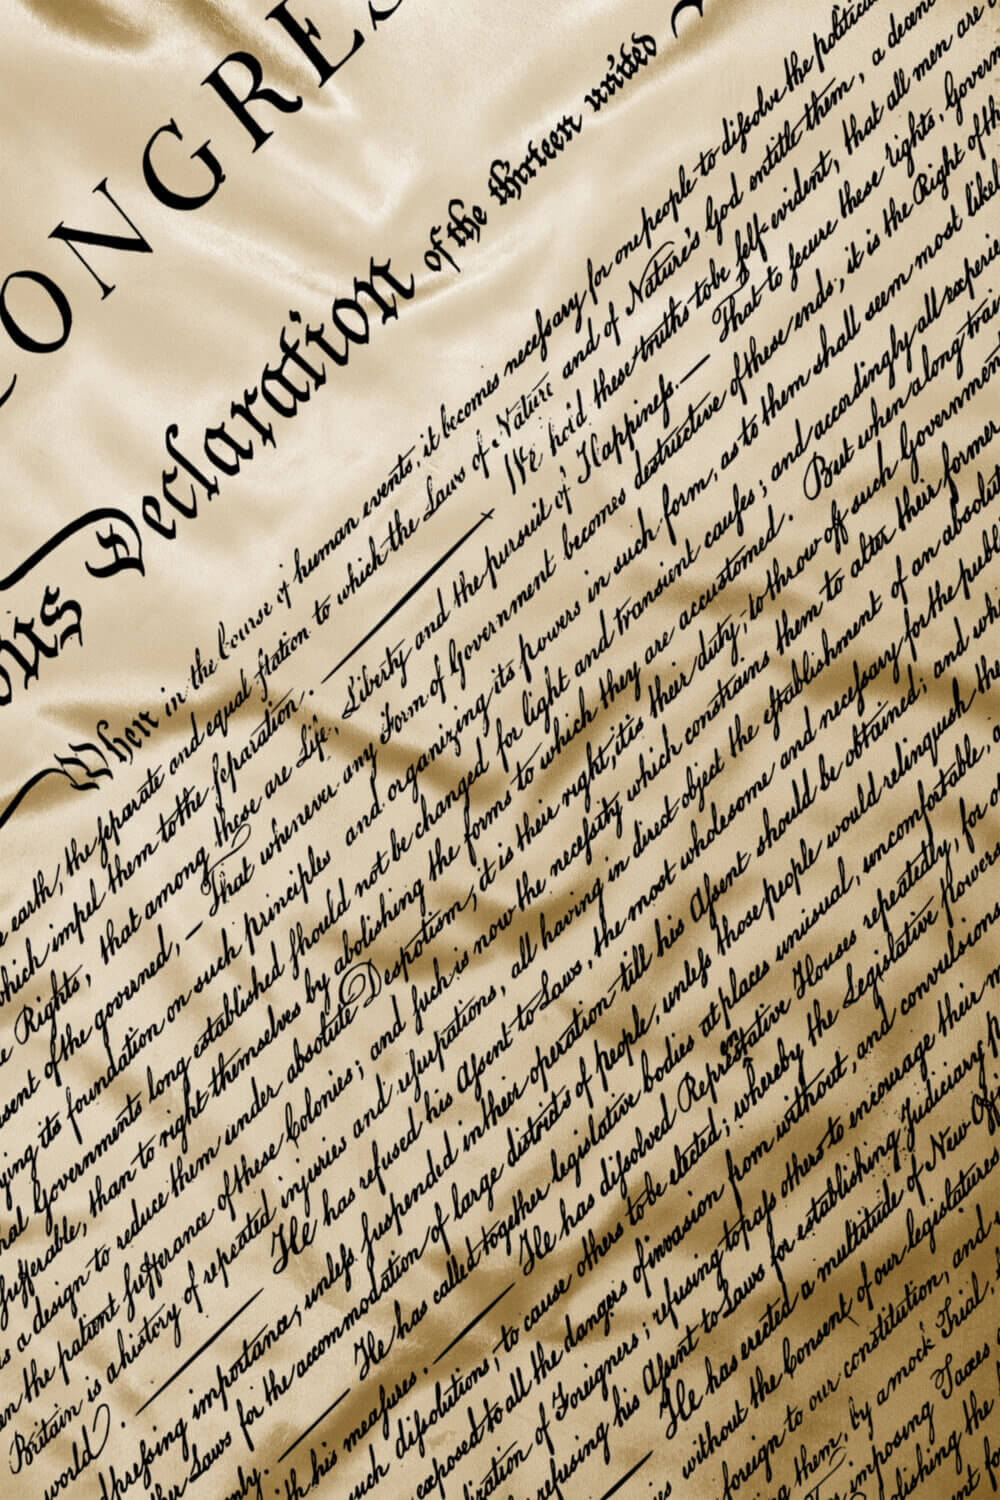 ONGRES
ous Declaration of the thirteen united
When in the Course of human events, it becomes necessary for one people to dissolve the political
earth, the separate and equal station to which the Laws of Nature and of Nature's God entitle them, a decent
which impel them to the separation. We hold these truths to be self-evident, that all men are
Rights, that among these are Life, Liberty and the pursuit of Happiness.— That to secure these rights, Govern
of the governed,— That whenever any Form of Government becomes destructive of these ends, it is the Right of the
ying its foundation on such principles and organizing its powers in such form, as to them shall seem most likel
Governments long established should not be changed for light and transient causes; and accordingly all experie
sufferable, than to right themselves by abolishing the forms to which they are accustomed. But when a long trai
a design to reduce them under absolute Despotism, it is their right, it is their duty, to throw off such Government
the patient sufferance of these Colonies; and such is now the necessity which constrains them to alter their former
Britain is a history of repeated injuries and usurpations, all having in direct object the establishment of an absolut
world. He has refused his Assent to Laws, the most wholesome and necessary for the publ
pressing importance, unless suspended in their operation till his Assent should be obtained; and whe
her Laws for the accommodation of large districts of people, unless those people would relinquish the
only. He has called together legislative bodies at places unusual, uncomfortable,
with his measures. He has dissolved Representative Houses repeatedly, for
such dissolutions, to cause others to be elected; whereby the Legislative powers
exposed to all the dangers of invasion from without, and convulsions
of Foreigners; refusing to pass others to encourage their
refusing his Assent to Laws for establishing Judiciary
He has erected a multitude of New Offi
without the Consent of our legislatures
foreign to our constitution, and
them, by a mock Trial,
imposing Taxes
olishing the